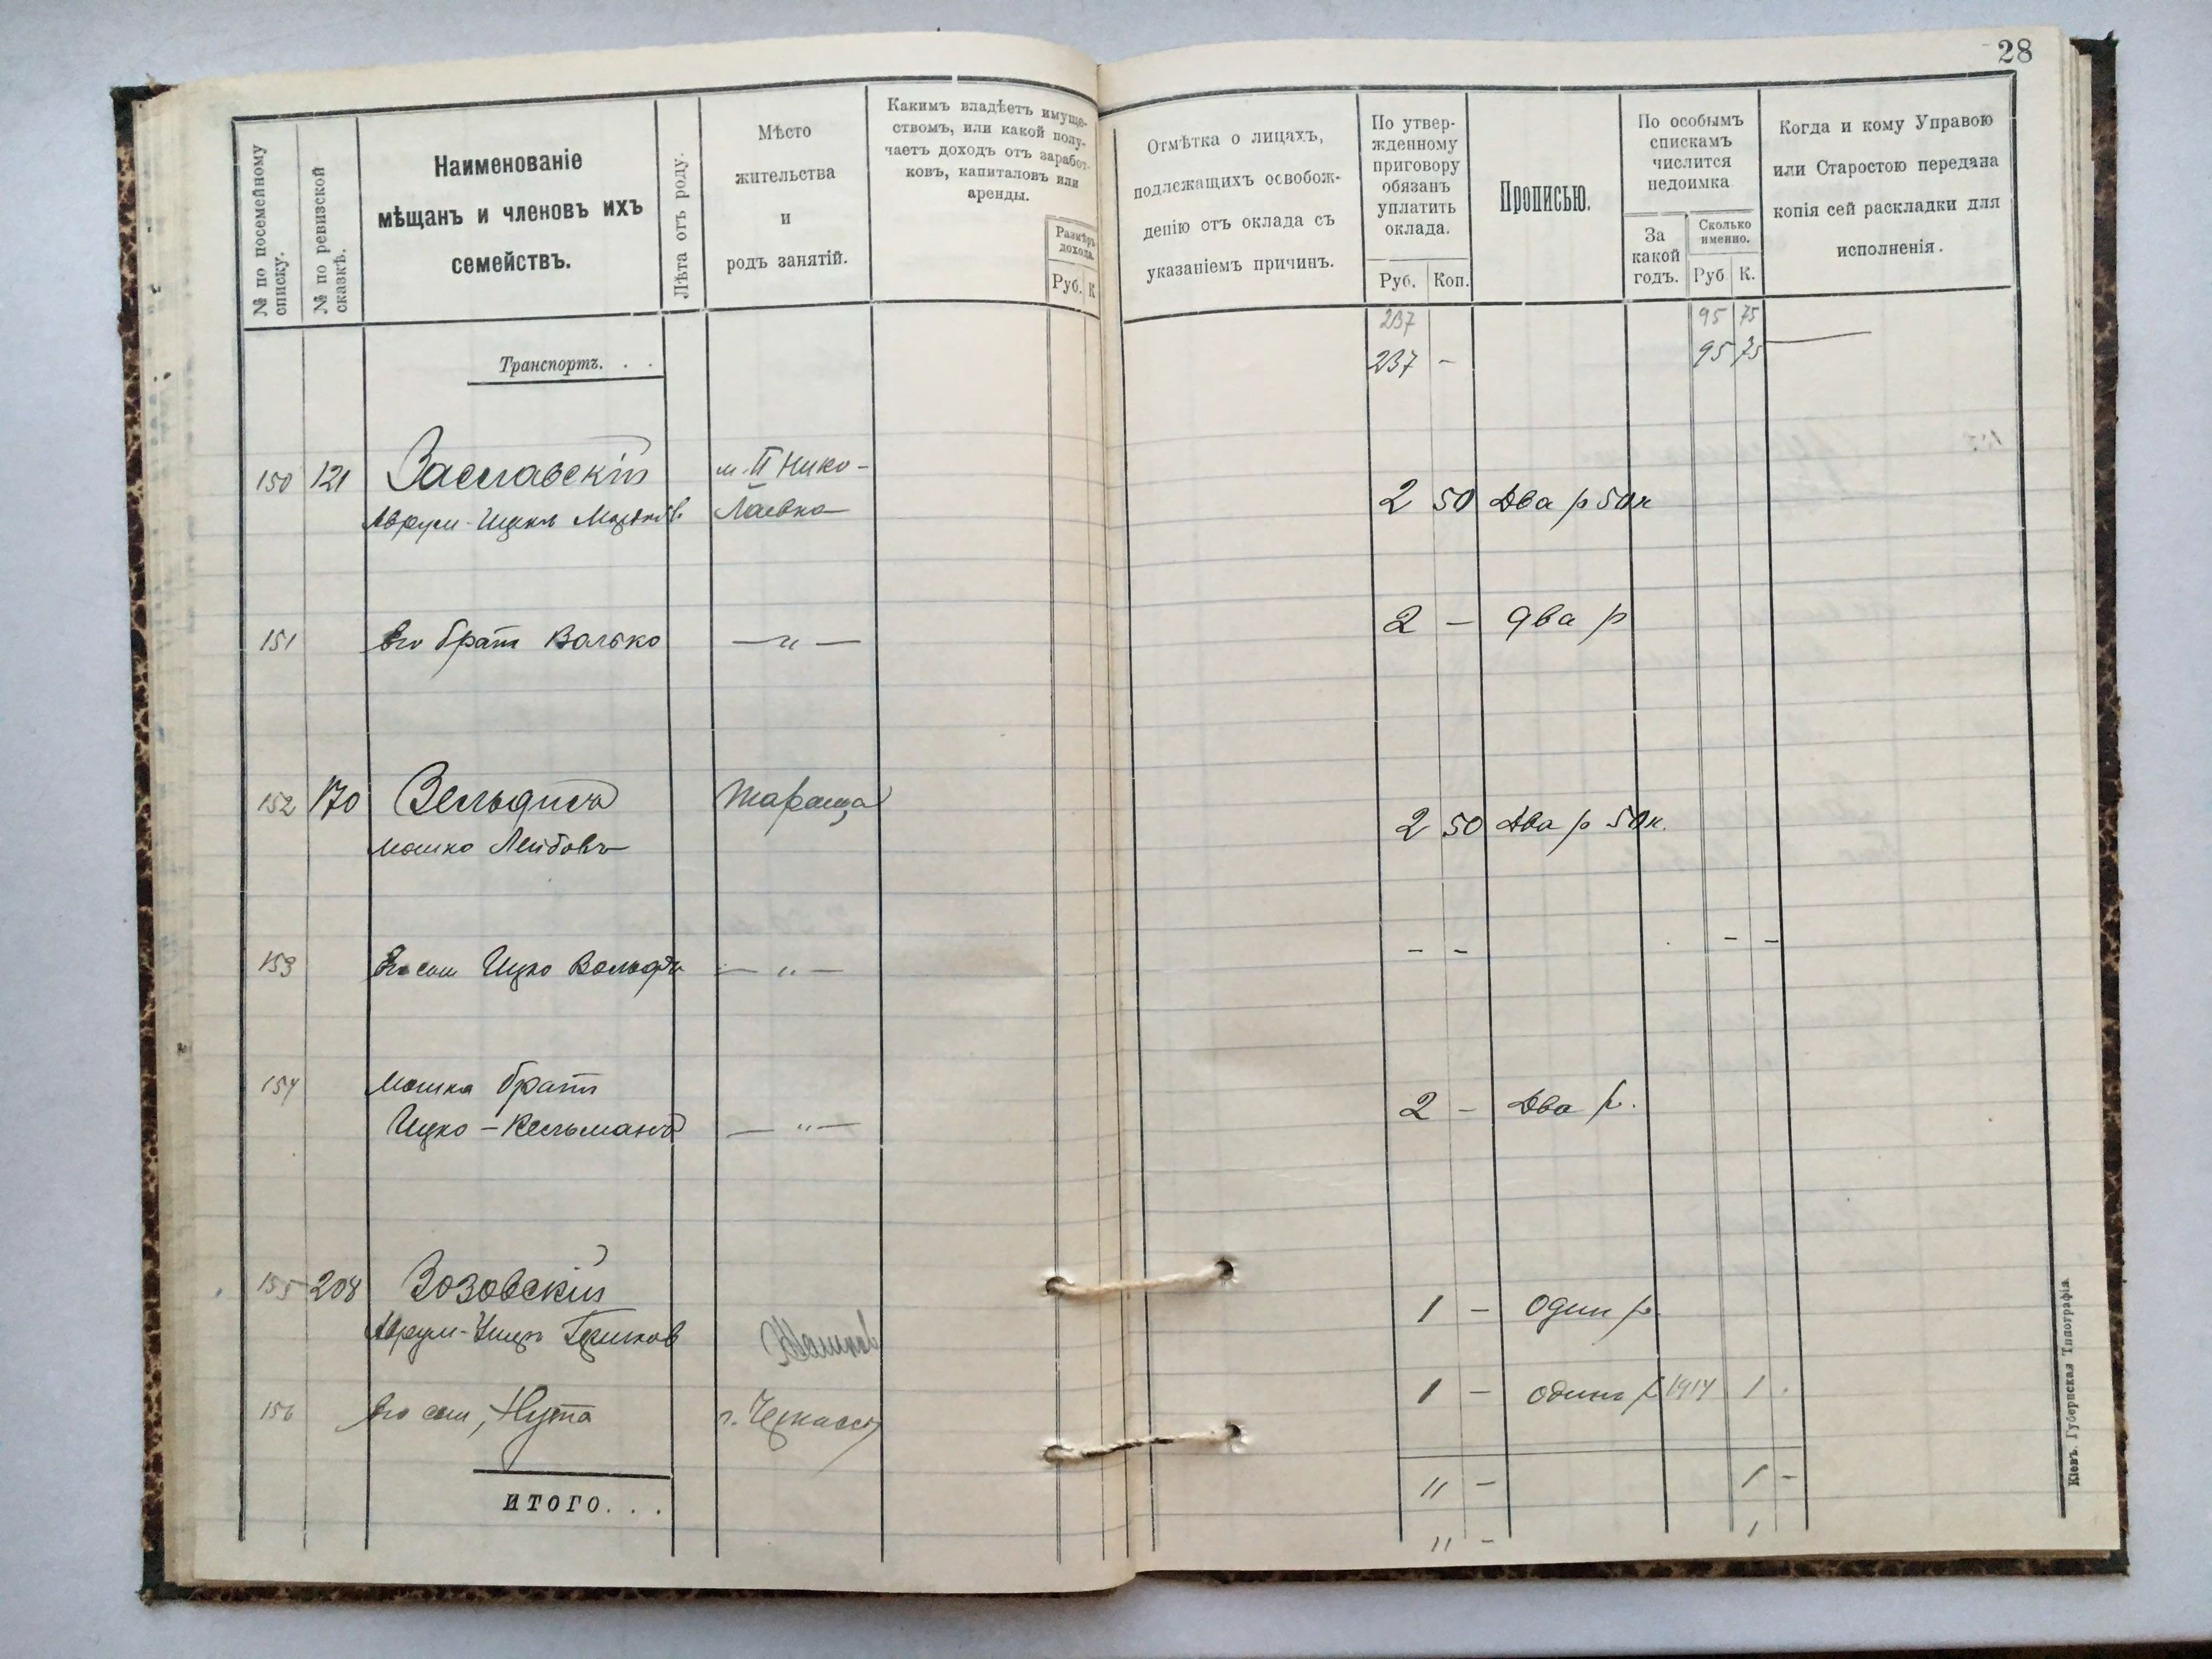 28
№ по посемейному списку.
№ по ревизской сказкѣ.
Наименованіе
мѣщанъ и членовъ ихъ
семействъ.
Лѣта отъ роду.
Мѣсто
жительства
и
родъ занятій.
Какимъ владѣетъ имуще-
ствомъ, или какой полу-
чаетъ доходъ отъ заработ-
ковъ, капиталовъ или
аренды.
Размѣръ
дохода.
Руб. К
Отмѣтка о лицахъ,
подлежащихъ освобож-
денію отъ оклада съ
указаніемъ причинъ.
По утвер-
жденному
приговору
обязанъ
уплатить
оклада.
Руб. Коп.
Прописью.
По особымъ
спискамъ
числится
недоимка
За
какой
годъ.
Сколько
именно.
Руб К.
Когда и кому Управою
или Старостою передана
копія сей раскладки для
исполненія.
237 95 75
Транспортъ. . . 237 - 95 75
150 121 Заславскій м. II Нико-
Аврум-Ицко лаевка 2 50 Два р 50к
151 Его брат Волько — " — 2 — два р
152 170 Зельдичъ Тараща
Мошко Лейбовъ 2 50 Два р 50к.
153 Его сын Ицко Вольфъ — " — - - - -
154 Мошка брат
Ицко - Кельманъ — " — 2 - Два р.
155 208 Зозовскій
Аврум- 1 - Один р.
156 Его сын, Нута г. Черкассы 1 - Одинъ р 1914 1 .
11 - 1 -
ИТОГО. . .
11 - 1
Кіевъ. Губернская Типографія.